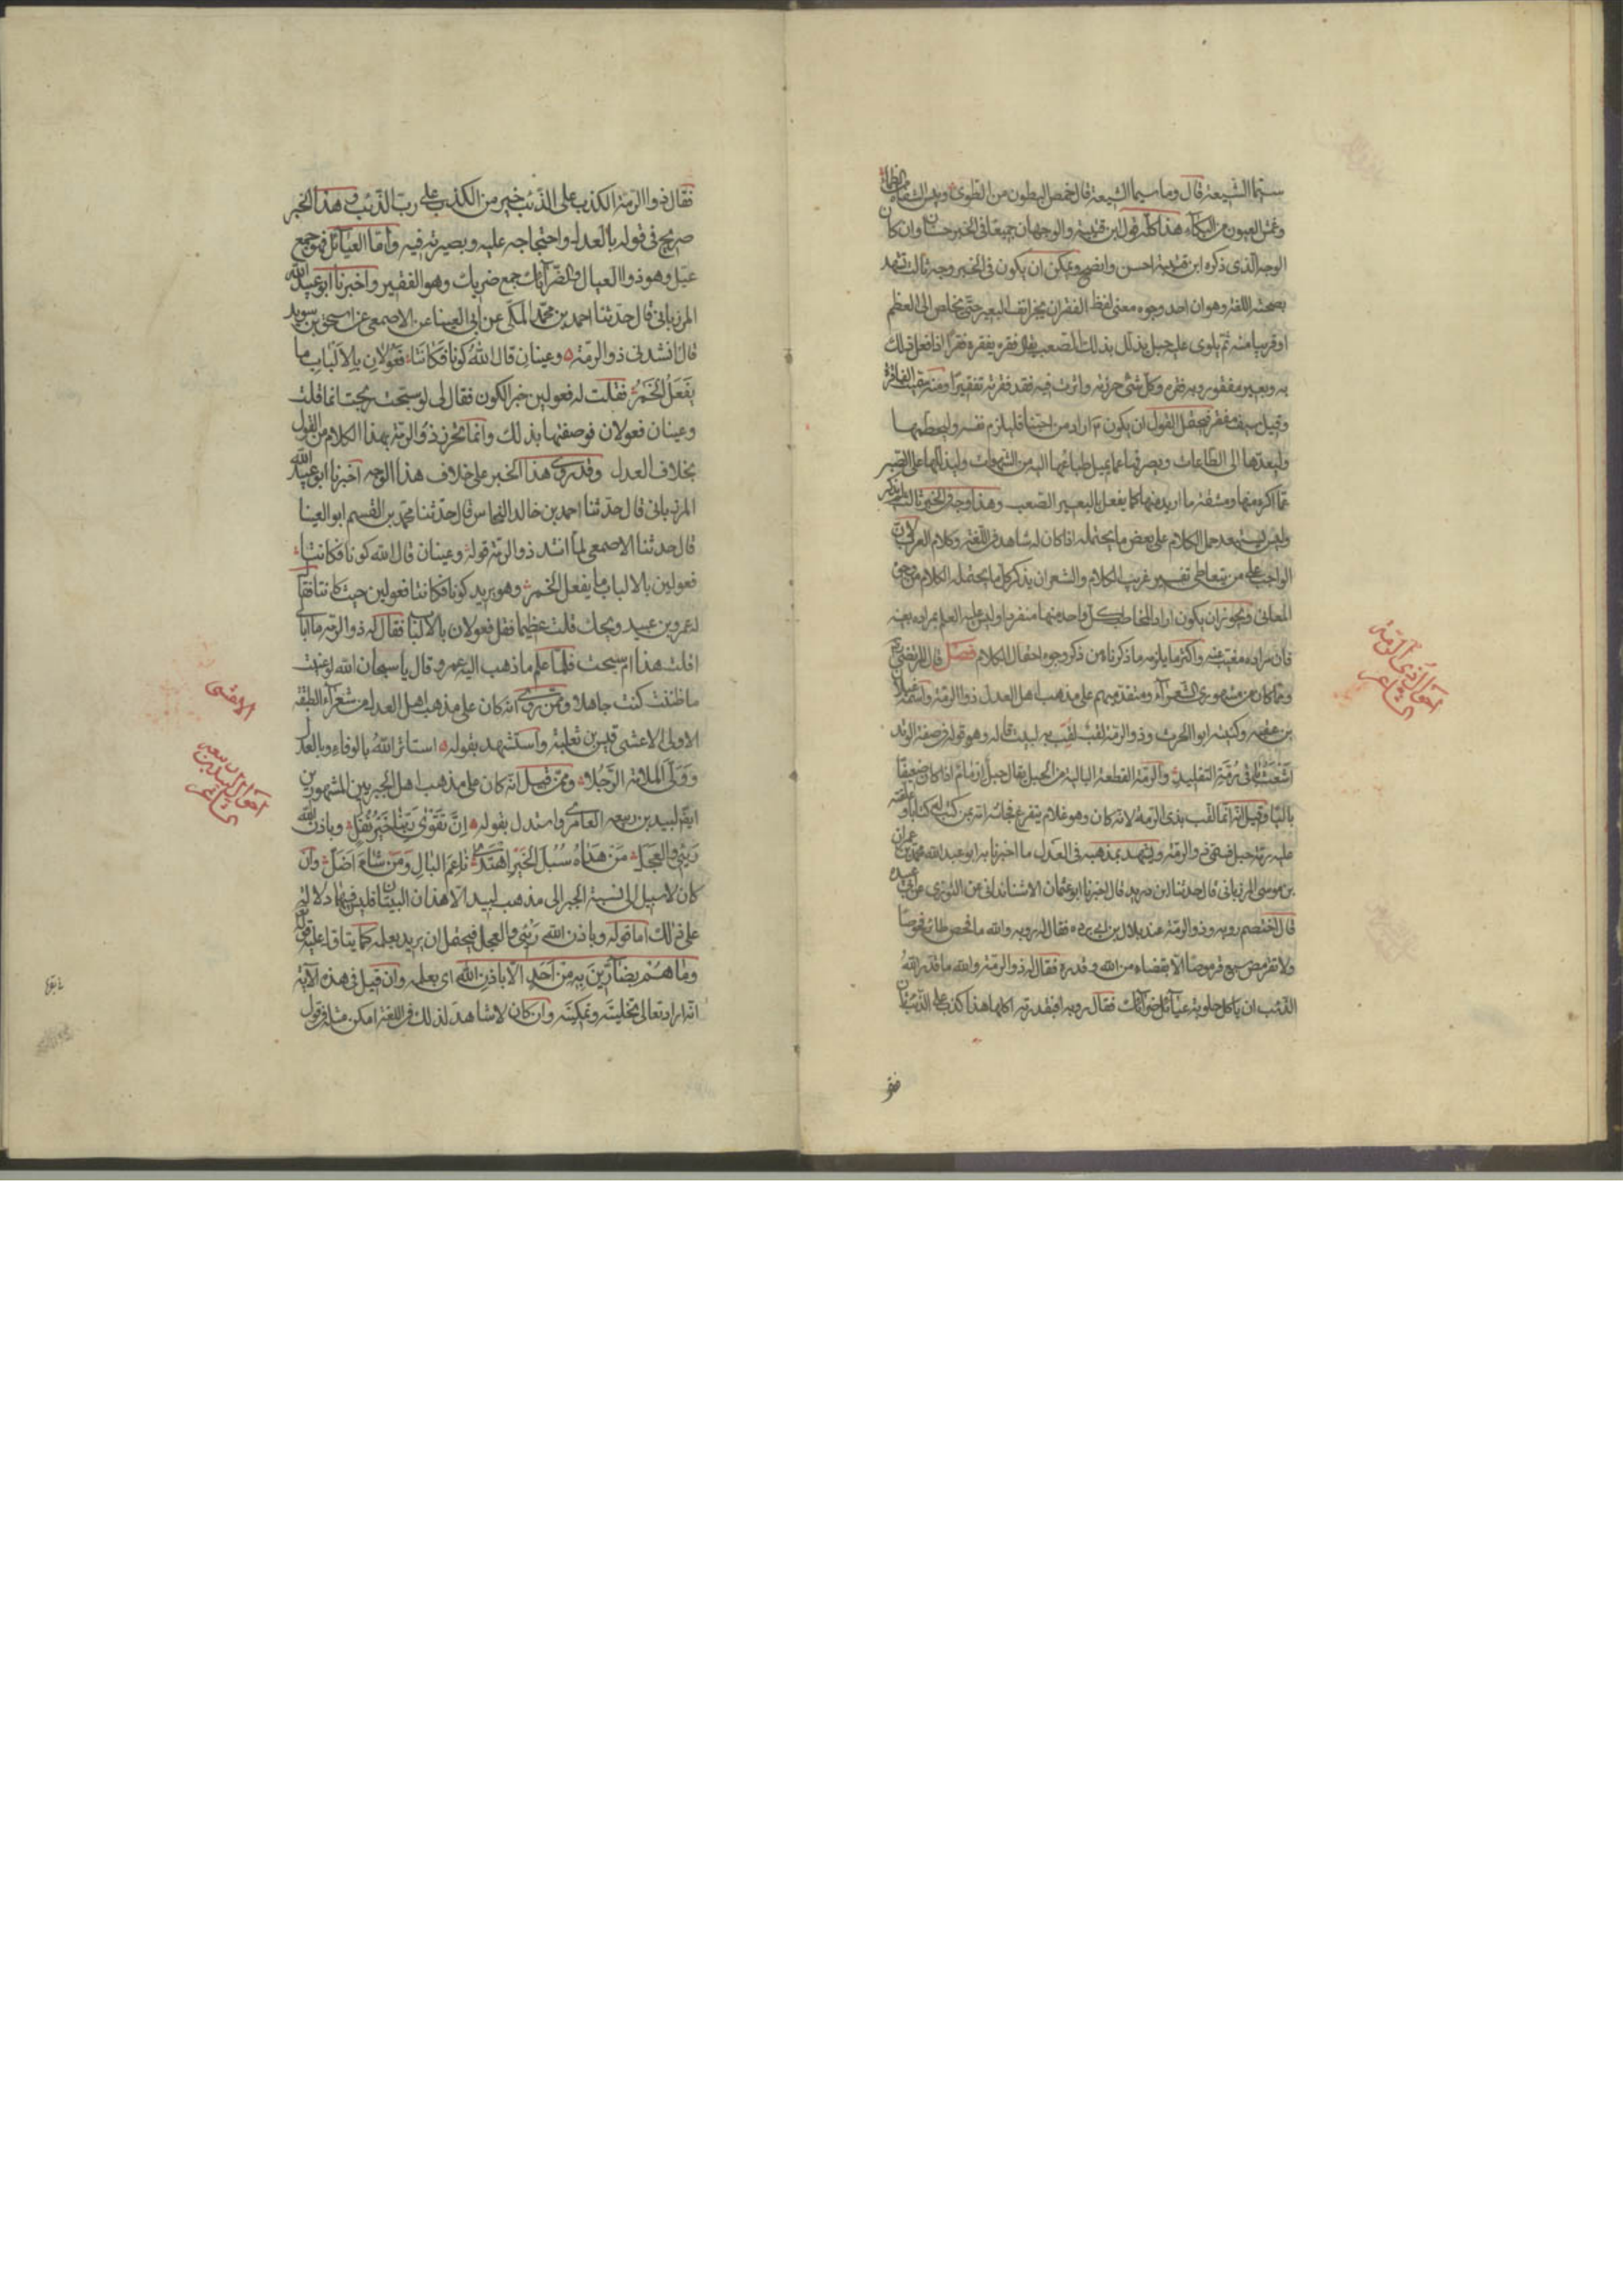 سيما الشيعة قال وما سيما الشيعة قال خمص البطون من الطوى ويبس الشفاه من الظماء
وعمش العيون من البكاء هذا كله قول ابن قتيبة والوجهان جميعا في الخبر حسنان وان كان
الوجه الذى ذكره ابن قتيبة احسن واوضح ويمكن ان يكون في الخبر وجه ثالث تشهد
بصحته اللغة وهو ان احد وجوه معنى لفظ الفقر ان يحز انف البعير حتى يخلص الى العظم
او قريب منه ثم يلوى عليه حبل يذلل بذلك الصعب يقال فقره يفقره فقرا اذا فعل ذلك
به وبعير مفقور وبه فقره وكل شئ حززته واثرت فيه فقد فقرته تفقيرا ومنه سميت الفاقرة
وقيل سيف مفقر فيحتمل القول ان يكون ع اراد من احبنا فليلزم نفسه وليخطمها
وليقدها الى الطاعات وليصرفها عما تميل طباعها اليه من الشهوات وليذللها على الصبر
عما كره منها ومشقة ما اريد منها كما يفعل بالبعير الصعب وهذا وجه في الخبر ثالث لم يذكر
وليس يستبعد حمل الكلام على بعض ما يحتمله اذا كان له شاهد في اللغة وكلام العرب لان
الواجب على من يتعاطى تفسير غريب الكلام والشعر ان يذكر كل ما يحتمله الكلام من وجوه
المعانى ويجوز ان يكون اراد المخاطب كل واحد منها منفردا وليس عليه العلم بمراده بعينه
فان مراده مغيب عنه واكثر ما يلزمه ما ذكرناه من ذكر وجوه احتمال الكلام فصل قال المرتضى
وممن كان من مشهورى الشعراء ومتقدميهم على مذهب اهل العدل ذو الرمة واسمه غيلان
بن عقبه وكنيته ابو الحرث وذو الرمة لقب لقب به لبيت قاله وهو قوله في صفة الوتد
اشعث باقى رمة التقليد والرمة القطعة البالية من الحبل يقال حبل ارمام اذا كان ضعيفا
باليا وقيل انه انما لقب بذى الرمة لانه كان وهو غلام يتفزع فجاءته امه بمن كتب له كتابا وعلقته
عليه برمة حبل فسمى ذو الرمة ويشهد بمذهبه في العدل ما اخبرنا به ابو عبد الله محمد بن عمران
بن موسى المرزبانى قال حدثنا ابن دريد قال اخبرنا ابو عثمان الاشناندانى عن التوزى عن ابى عبيده
قال اختصم روبه وذو الرمة عند بلال بن ابى برده فقال له روبه والله ما فحص طائر فحوصا
ولا تقرمص سبع قرموصا الا بقضاء من الله وقدره فقال له ذو الرمة والله ما قدر الله
الذئب ان ياكل حلوبة عيائل ضرائك فقال روبه افبقدرته اكلها هذا كذب على الذئب ثان
فقا
احوال ذى الرمة
الشاعر
فقال ذو الرمة الكذب على الذئب خير من الكذب على رب الذئب وهذا الخبر
صريح فى قوله بالعدل واحتجاجه عليه وبصيرته فيه واما العيائل فهو جمع
عيل وهو ذو العيال والضرائك جمع ضريك وهو الفقير واخبرنا ابو عبيد الله
المرزبانى قال حدثنا احمد بن محمد المكى عن ابى العينا عن الاصمعى عن اسحق بن سويد
قال انشدنى ذو الرمة وعينان قال الله كونا فكانتا فعولان بالالباب ما
يفعل الخمر فقلت له فعولين خبر الكون فقال لى لو سبحت ربحت انما قلت
وعينان فعولان فوصفتهما بذلك وانما تحرز ذو الرمة بهذا الكلام من القول
بخلاف العدل وقد روى هذا الخبر على خلاف هذا الوجه اخبرنا ابو عبيد الله
المرزبانى قال حدثنا احمد بن خالد النخاس قال حدثنا محمد بن القسم ابو العينا
قال حدثنا الاصمعى لما انشد ذو الرمة قوله وعينان قال الله كونا فكانتا
فعولين بالالباب ما يفعل الخمر وهو يريد كونا فكانتا فعولين حيث كانتا فقال
له عمرو بن عبيد ويحك قلت عظيما فقل فعولان بالالباب فقال له ذو الرمة ما ابالى
اقلت هذا ام سبحت فلما علم ما ذهب اليه عمرو قال يا سبحان الله لو عنيت
ما ظننت كنت جاهلا وممن روى انه كان على مذهب اهل العدل من شعراء الطبقة
الاولى الاعشى قيس بن ثعلبة واستشهد بقوله استاثر الله بالوفاء وبالعدل
وولى الملامة الرجلا وممن قيل انه كان على مذهب اهل الجبر من المشهورين
ايضا لبيد بن ربيعه العامرى واستدل بقوله ان تقوى ربنا خير نفل وباذن الله
ريثى والعجل من هداه سبل الخير اهتدى ناعم البال ومن شاء اضل وان
كان لا سبيل الى نسبة الجبر الى مذهب لبيد الا هذان البيتان فليس فيهما دلالة
على ذلك اما قوله وباذن الله ريثى والعجل فيحتمل ان يريد بعلمه كما يتاول عليه قوله
وما هم بضارين به من احد الا باذن الله اى بعلمه وان قيل فى هذه الآية
انه اراد تعالى بتخليته وتمكينه وان كان لا شاهد لذلك فى اللغة امكن مثله فى قول
الاعشى
احوال لبيد بن ربيعه
الشاعر